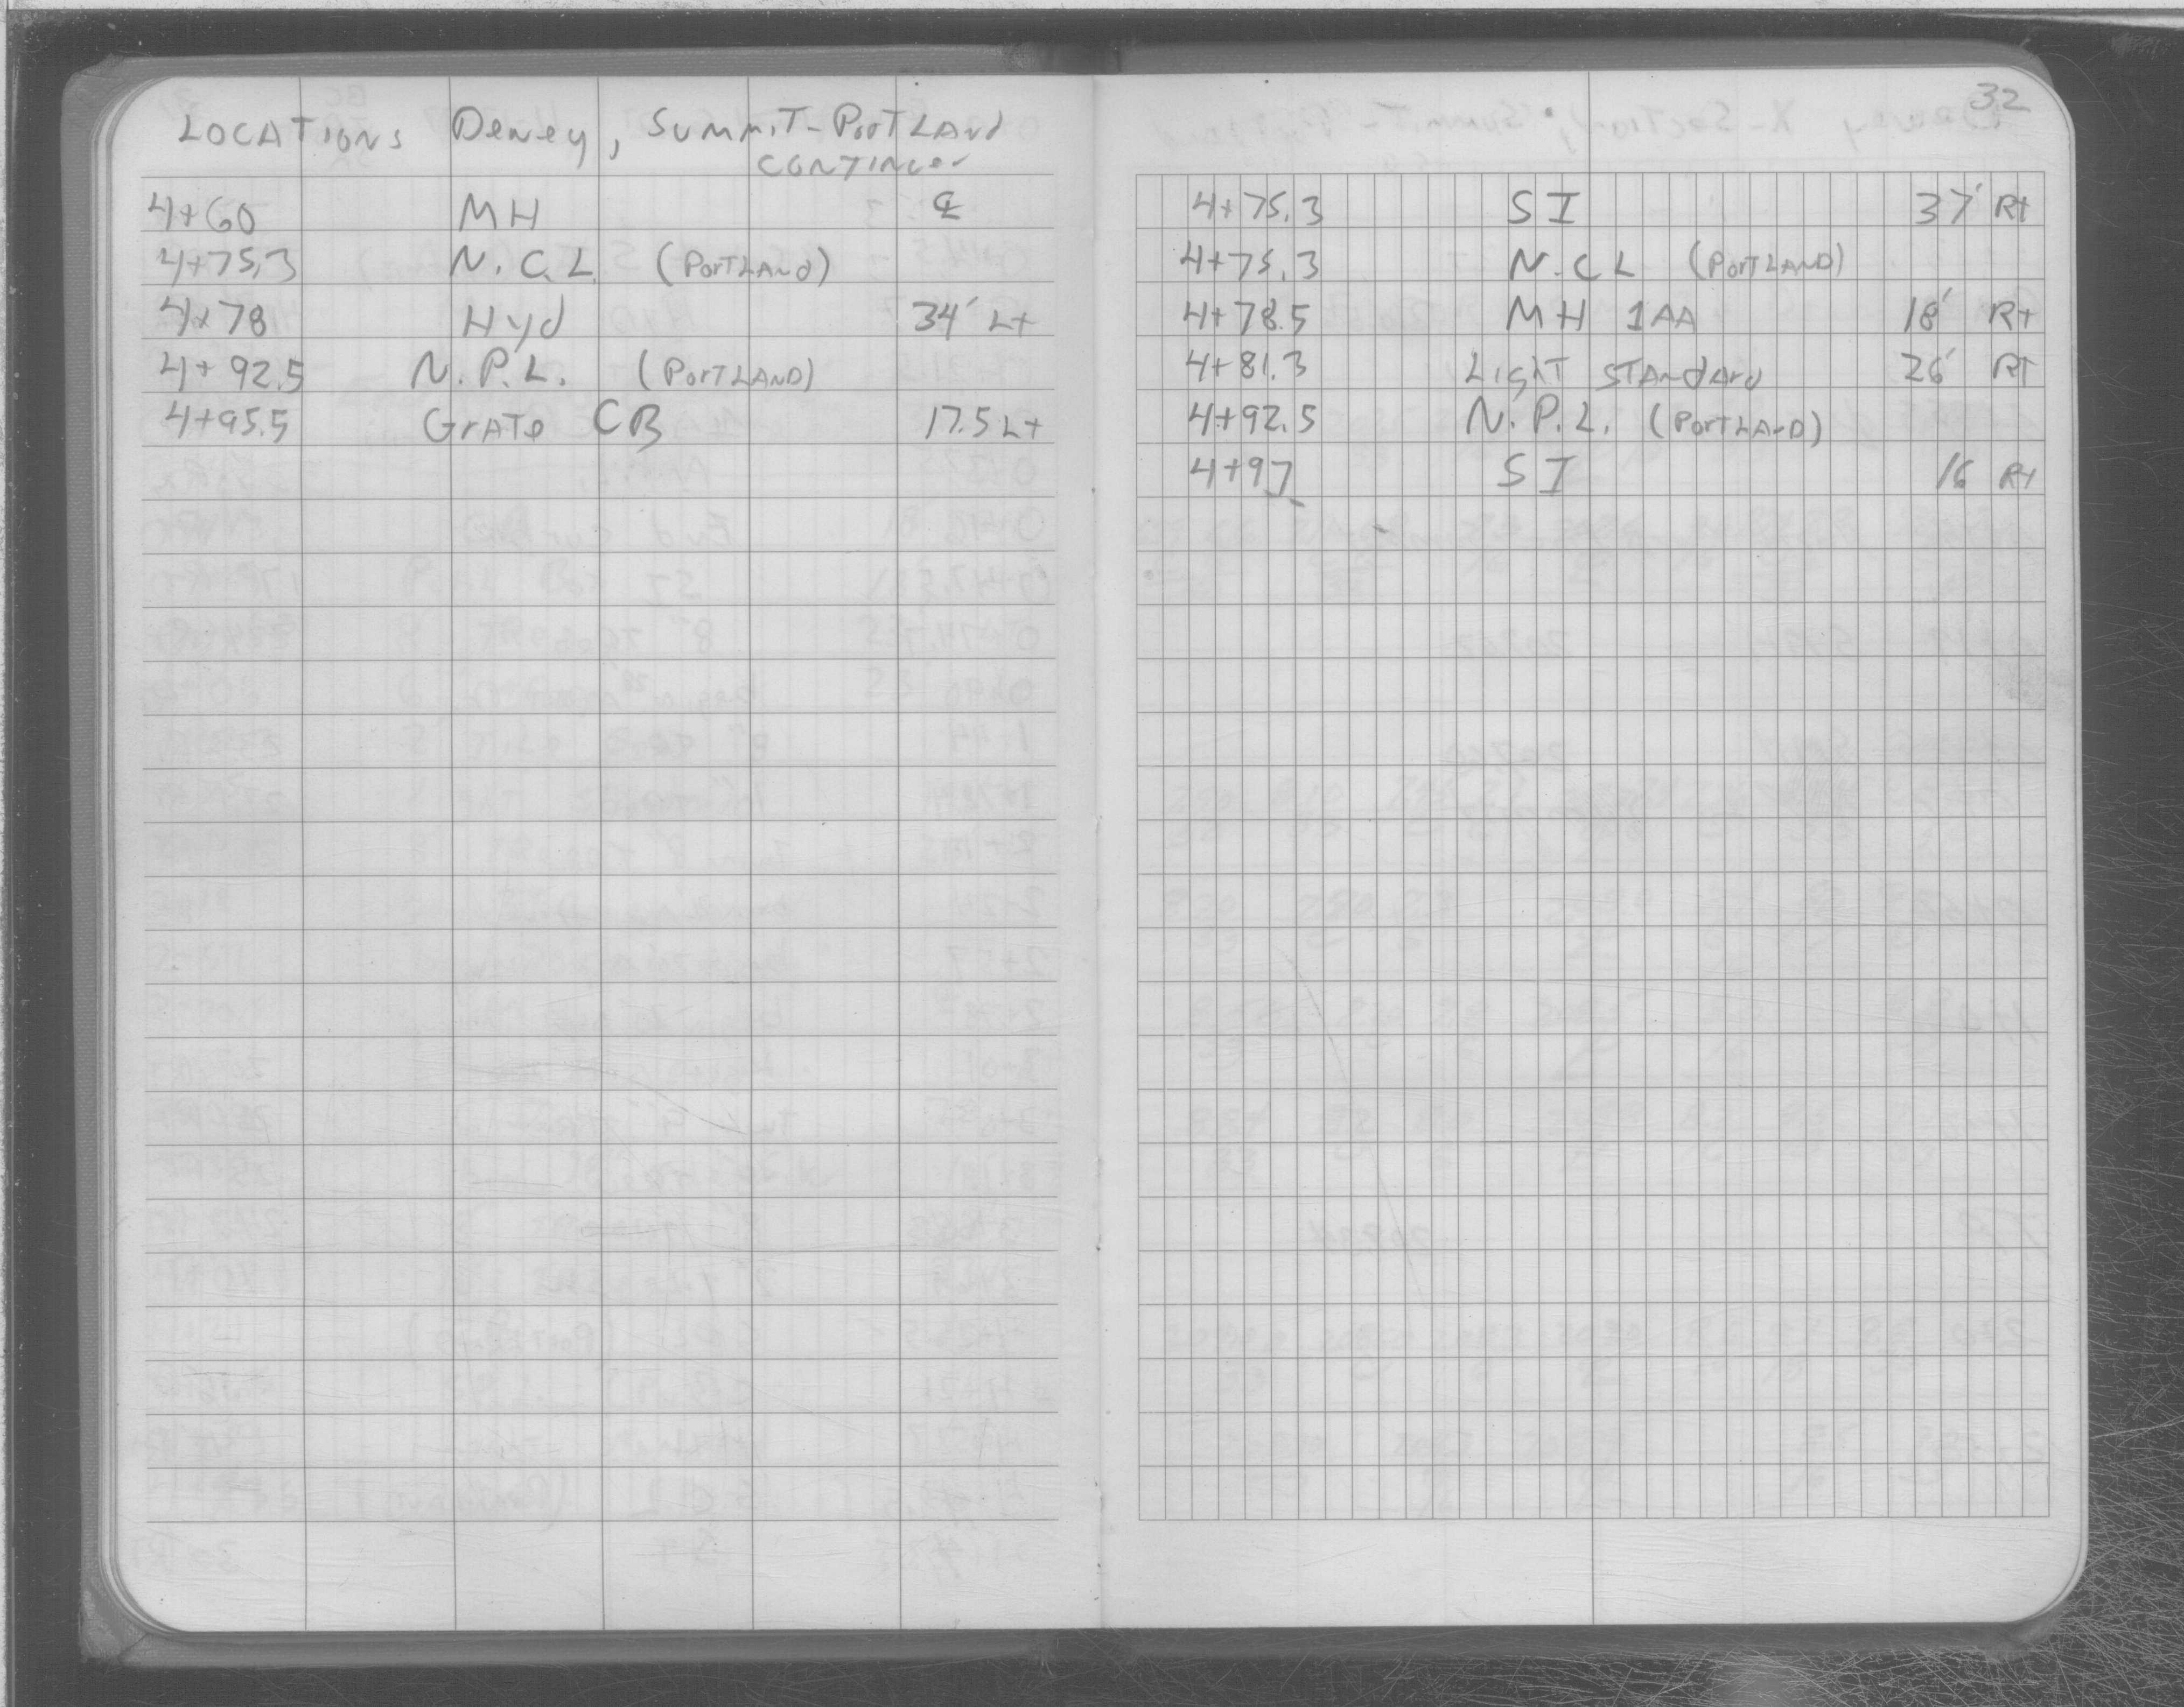 LOCATIONS Dewey, SUMMIT-PORTLAND
CONTINUED
4+60 MH ℄
4+75.3 N.C.L. (PORTLAND)
4+78 Hyd 34' Lt
4+92.5 N.P.L. (PORTLAND)
4+95.5 GRATE CB 17.5 Lt
32
4+75.3 SI 37' Rt
4+75.3 N.C.L (PORTLAND)
4+78.5 MH 1AA 18' Rt
4+81.3 Light STANdArd 26' Rt
4+92.5 N.P.L. (PORTLAND)
4+97 SI 16 Rt